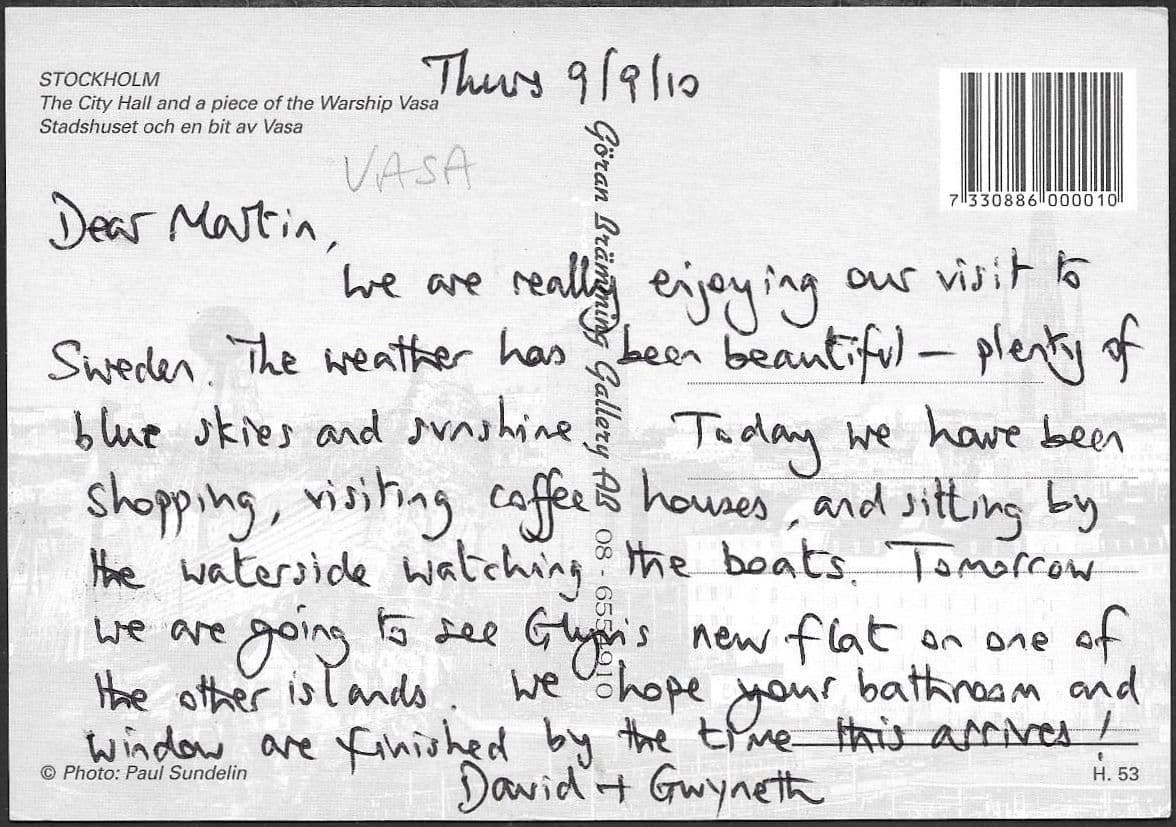 STOCKHOLM
The City Hall and a piece of the Warship Vasa
Stadshuset och en bit av Vasa
Thurs 9/9/10
7 330886 000010
VASA
Dear Martin,
We are really enjoying our visit to
Sweden. The weather has been beautiful – plenty of
blue skies and sunshine. Today we have been
shopping, visiting coffee houses, and sitting by
the waterside watching the boats. Tomorrow
we are going to see Glyn's new flat on one of
the other islands. We hope your bathroom and
window are finished by the time this arrives!
David + Gwyneth
Göran Brämming Gallery AB 08-655 910
© Photo: Paul Sundelin
H. 53